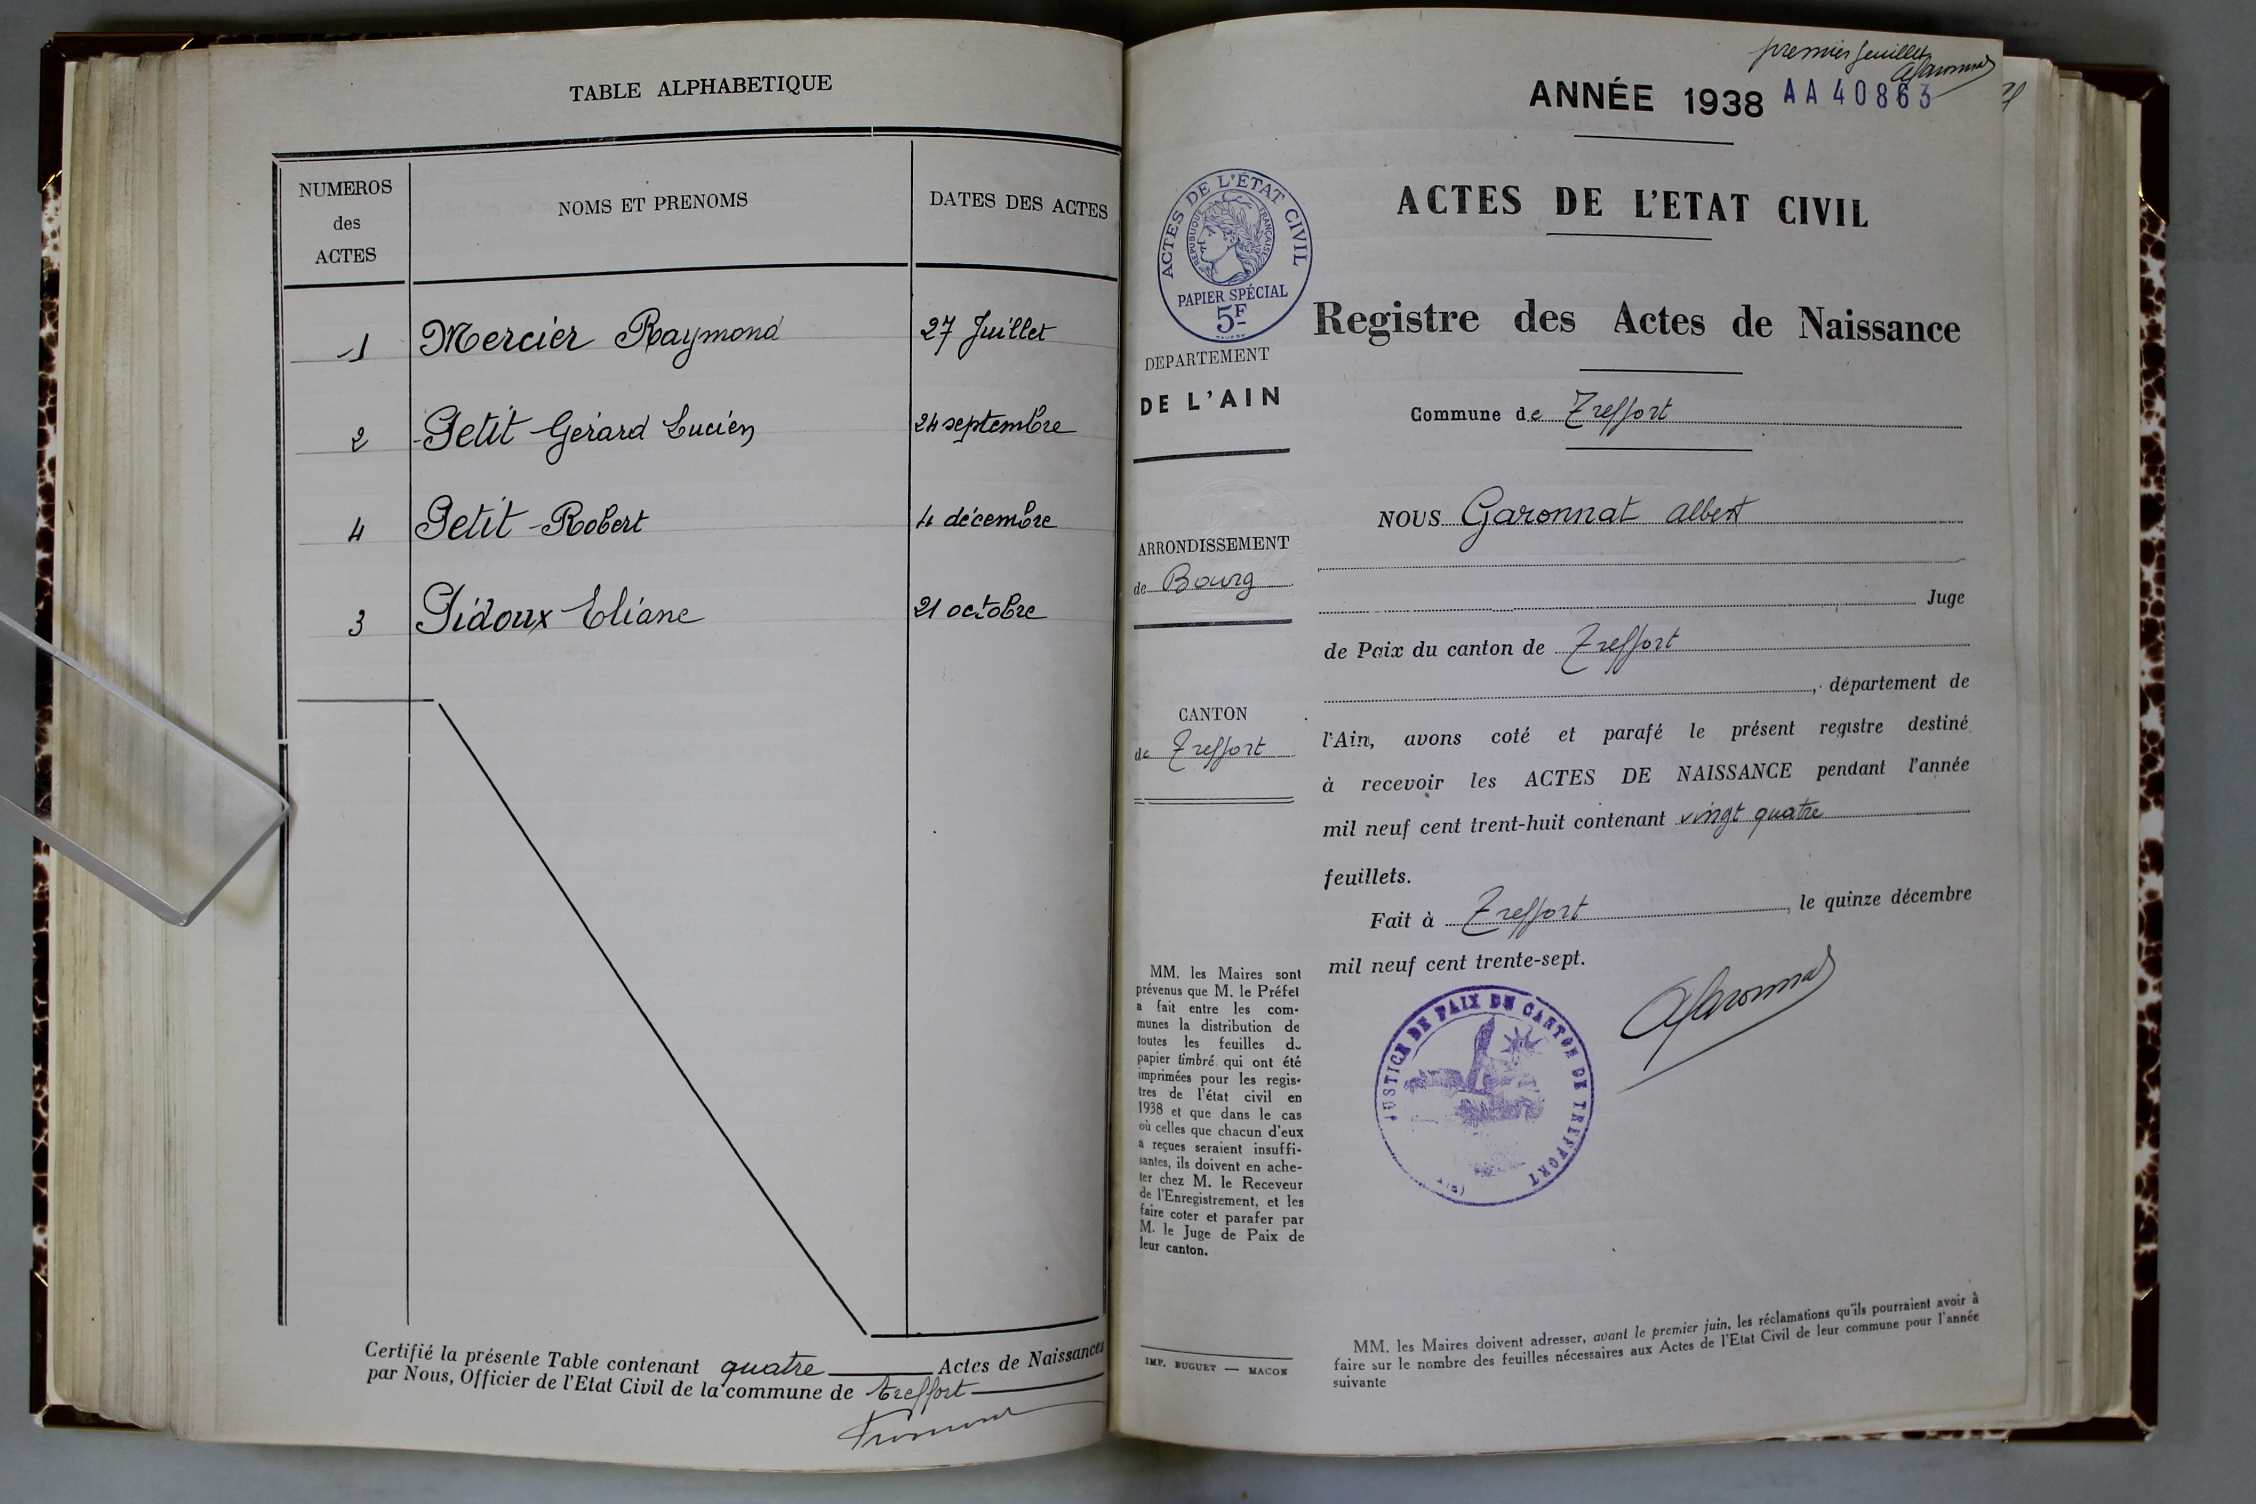 TABLE ALPHABETIQUE
NUMEROS
des
ACTES
NOMS ET PRENOMS
DATES DES ACTES
1 Mercier Raymond 27 Juillet
2 Petit Gérard Lucien 24 septembre
4 Petit Robert 4 décembre
3 Pidoux Eliane 21 octobre
Certifié la présente Table contenant quatre Actes de Naissances
par Nous, Officier de l'Etat Civil de la commune de Treffort
premier feuillet
AGaronnat
ANNÉE 1938 AA 40863
ACTES DE L'ÉTAT CIVIL
REPUBLIQUE FRANÇAISE
PAPIER SPÉCIAL
5F
ACTES DE L'ETAT CIVIL
Registre des Actes de Naissance
DEPARTEMENT
DE L'AIN
ARRONDISSEMENT
de Bourg
CANTON
de Treffort
Commune de Treffort
NOUS Garonnat Albert
Juge
de Paix du canton de Treffort
, département de
l'Ain, avons coté et parafé le présent registre destiné
à recevoir les ACTES DE NAISSANCE pendant l'année
mil neuf cent trent-huit contenant vingt quatre
feuillets.
Fait à Treffort, le quinze décembre
mil neuf cent trente-sept.
AGaronnat
JUSTICE DE PAIX DU CANTON DE TREFFORT
MM. les Maires sont
prévenus que M. le Préfet
a fait entre les com-
munes la distribution de
toutes les feuilles du
papier timbré qui ont été
imprimées pour les regis-
tres de l'état civil en
1938 et que dans le cas
où celles que chacun d'eux
a reçues seraient insuffi-
santes, ils doivent en ache-
ter chez M. le Receveur
de l'Enregistrement, et les
faire coter et parafer par
M. le Juge de Paix de
leur canton.
IMP. BUGUET — MACON
MM. les Maires doivent adresser, avant le premier juin, les réclamations qu'ils pourraient avoir à
faire sur le nombre des feuilles nécessaires aux Actes de l'Etat Civil de leur commune pour l'année
suivante